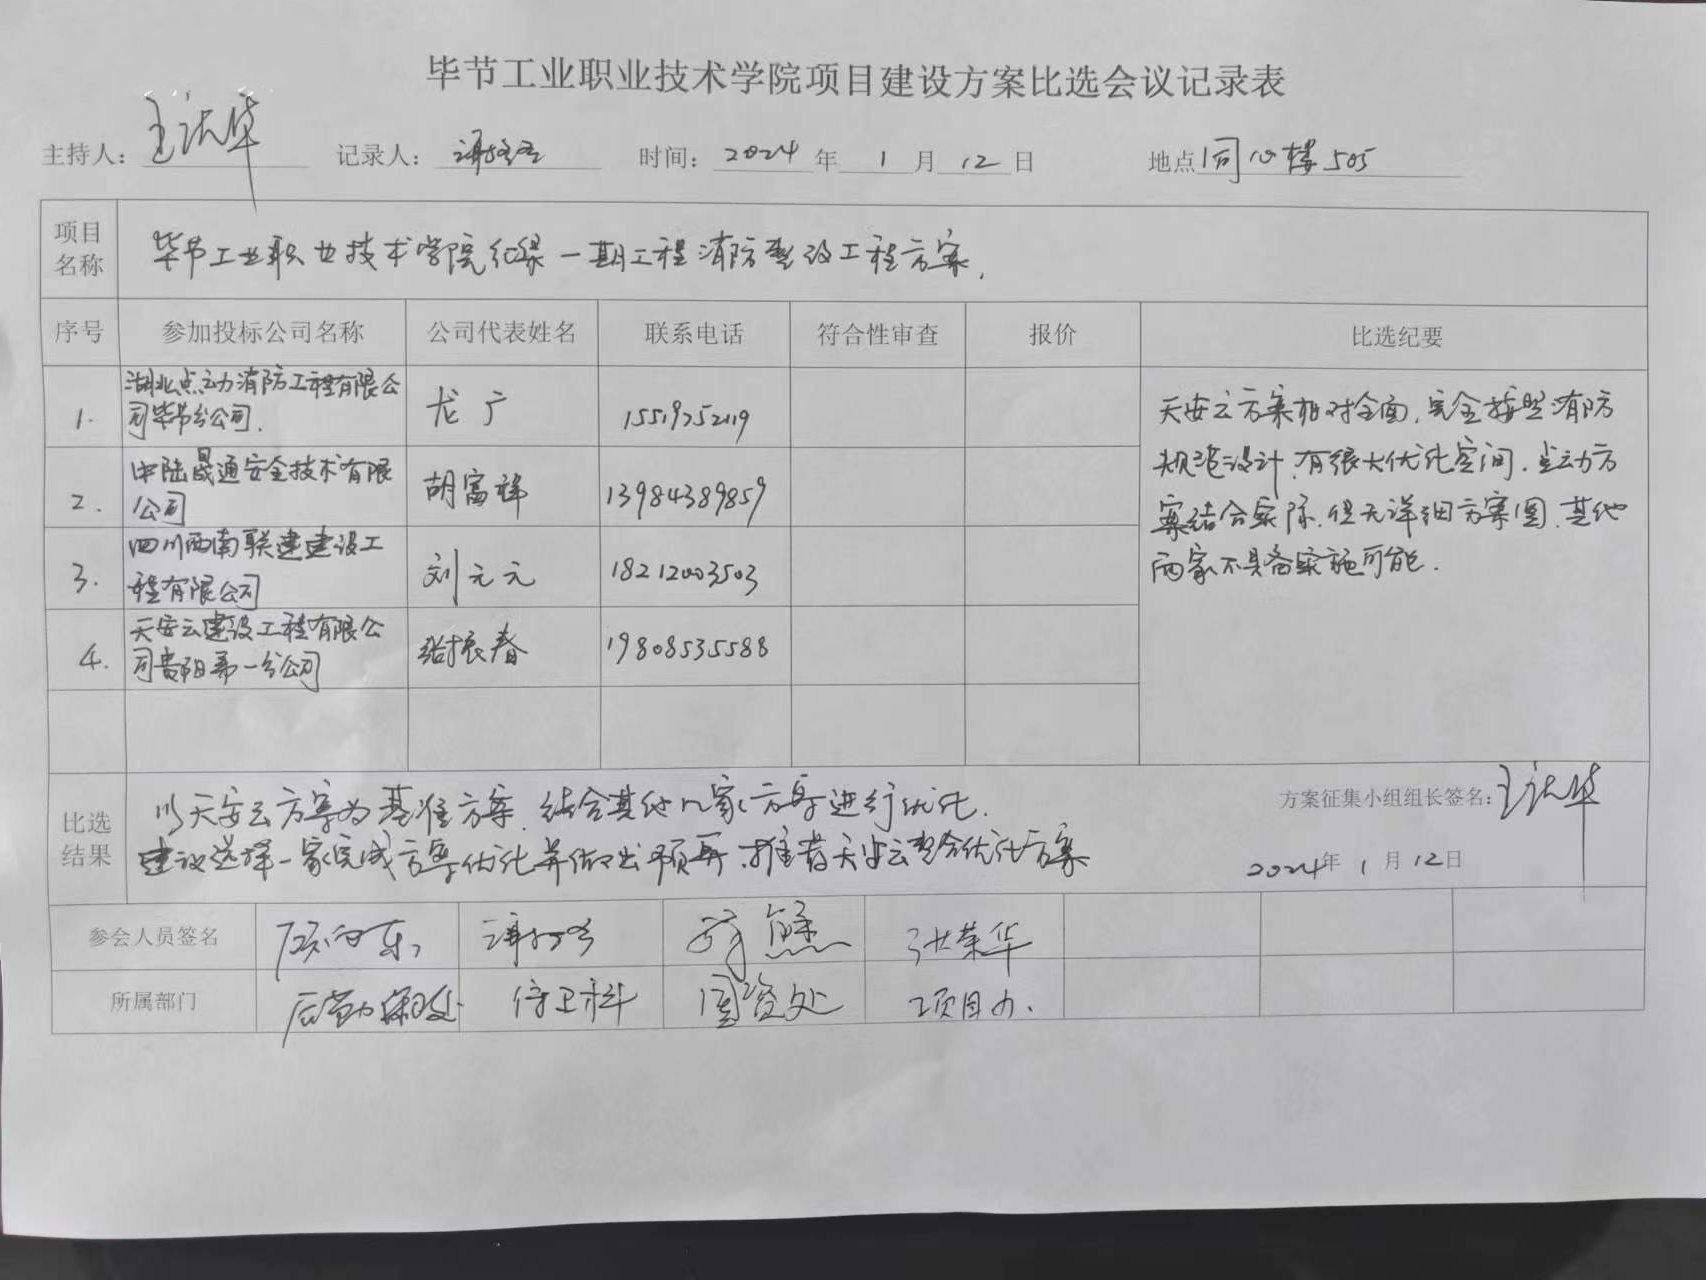 毕节工业职业技术学院项目建设方案比选会议记录表
主持人： 记录人： 时间：2024年1月12日 地点 同心楼505
项目名称 毕节工业职业技术学院 一期工程消防整改工程方案.
序号 参加投标公司名称 公司代表姓名 联系电话 符合性审查 报价 比选纪要
1. 湖北点动消防工程有限公
司毕节分公司. 龙广
2. 中陆晟通安全技术有限
公司 胡富祥 13984389859
3. 四川西南联建建设工
程有限公司 刘元元 18212003503
4. 天安云建设工程有限公
司贵阳第一分公司 张振春 19808535588
天安云方案相对全面,完全按照消防
规范设计,有很大优化空间.点动方
案结合实际,但无详细方案图,其他
两家不具备实施可能.
比选结果 以天安云方案为基准方案,结合其他几家方案进行优化.
建议选择一家完成方案优化并做出预算,推荐天安云整合优化方案
方案征集小组组长签名：
2024年1月12日
参会人员签名 张荣华
所属部门 后勤 处 保卫科 国资处 项目办.